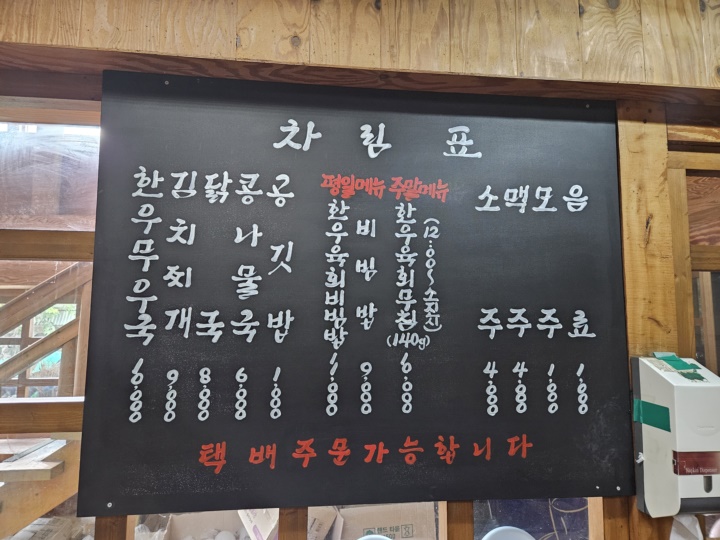 차림표
한우무우국 6,000
김치찌개 9,000
닭국 8,000
콩나물국 6,000
공깃밥 1,000
평일메뉴
한우육회비빔밥
비빔밥 9,000
주말메뉴
한우육회무침(140g)
(12:00~소진시)
소주 4,000
맥주 4,000
모주 1,000
음료 1,000
택배주문가능합니다